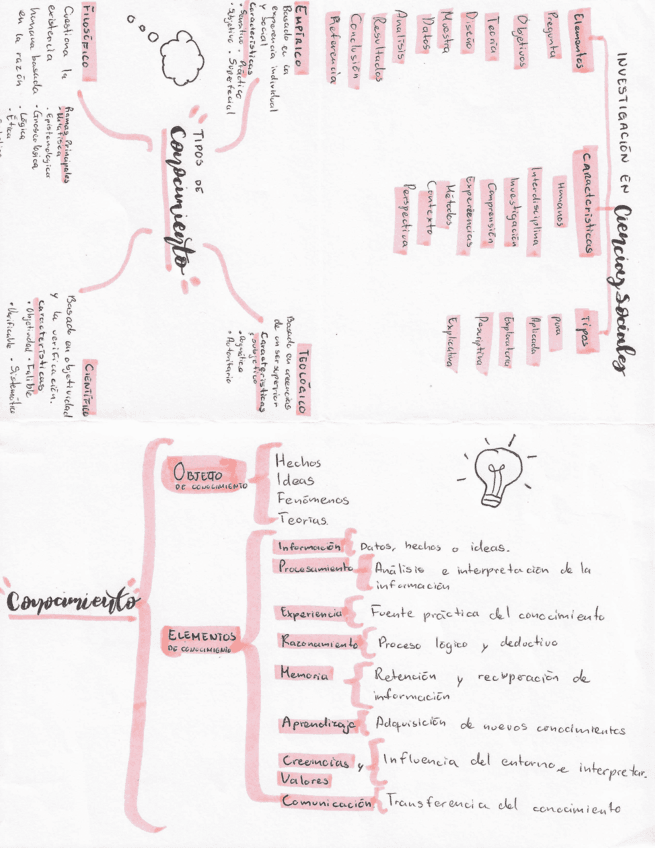 INVESTIGACIÓN EN Ciencias Sociales
Elementos
Pregunta
Objetivos
Teoría
Diseño
Muestra
Datos
Análisis
Resultados
Conclusión
Referencia
Características
Humanos
Interdisciplina
Investigación
Comprensión
Experiencias
Métodos
Contexto
Perspectiva
Tipos
pura
Aplicada
Exploratoria
Descriptiva
Explicativa
TIPOS DE
Conocimiento
EMPÍRICO
Basado en la
experiencia individual
y social
Características
• Sensitivo • Práctico
• Subjetivo • Superfecial
TEOLÓGICO
Basado en creencias
de un ser superior
Características
• Subjetivo
• Autoritario
FILOSÓFICO
Cuestiona la
existencia
humana basada
en la razón
Ramas Principales
• Metafísica
• Epistemologica
• Gnoseologica
• Lógica
• Ética
CIENTÍFICO
Basado en objetividad
y la verificación.
Características
• Objetividad • Falible
• Verificable • Sistemático
Conocimiento
OBJETO
DE CONOCIMIENTO
Hechos
Ideas
Fenómenos
Teorías
ELEMENTOS
DE CONOCIMIENTO
Información Datos, hechos o ideas.
Procesamiento Análisis e interpretación de la
información
Experiencia Fuente práctica del conocimiento
Razonamiento Proceso lógico y deductivo
Memoria Retención y recuperación de
información
Aprendizaje Adquisición de nuevos conocimientos
Creencias y Influencia del entorno e interpretar.
Valores
Comunicación Transferencia del conocimiento